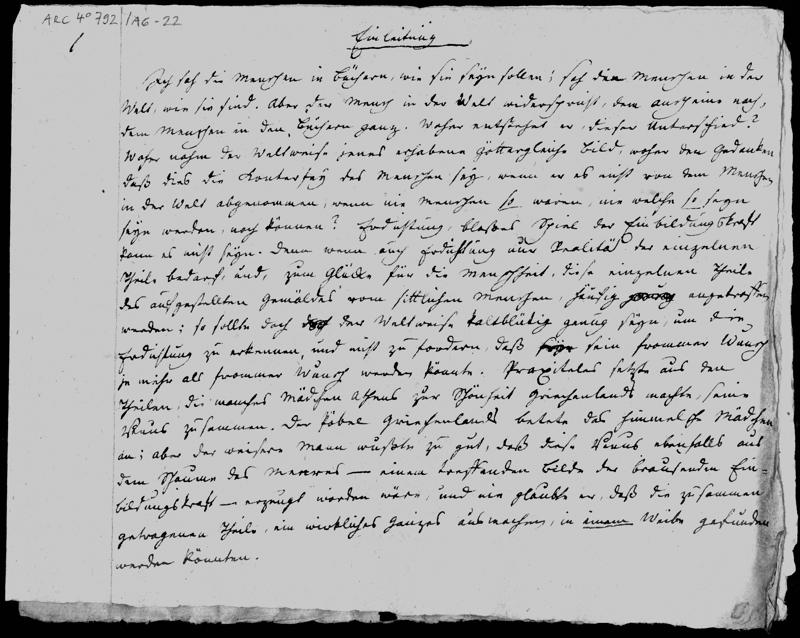 ARC 4° 792 / A6-22
1
Einleitung
Ich sah die Menschen in Büchern, wie sie seyn sollen; sah den Menschen in der
Welt, wie sie sind. Aber der Mensch in der Welt widerspricht, dem anscheine nach,
dem Menschen in den Büchern ganz. Woher entstehet er, dieser Unterschied?
Woher nahm der Weltweise jenes erhabene göttergleiche Bild, woher den Gedanken
daß dies die Konterfey des Menschen sey, wenn er es nicht von dem Menschen
in der Welt abgenommen, wenn nie Menschen so waren, nie welche so seyn
seyn werden, noch können? Erdichtung, bloßes Spiel der Einbildungskraft
kann es nicht seyn. Denn wenn auch Erdichtung nur Realität der einzelnen
Theile bedarf, und, zum Glücke für die Menschheit, diese einzelnen Theile
des aufgestellten Gemäldes vom sittlichen Menschen, häufig angetroffen
werden; so sollte doch der Weltweise kaltblütig genug seyn, um die
Erdichtung zu erkennen, und nicht zu fordern, daß sein frommer Wunsch
je mehr als frommer Wunsch werden könnte. Praxiteles setzte aus den
Theilen, die manches Mädchen Athens zur Schönheit Griechenlands machte, seine
Venus zusammen. Der Pöbel Griechenlands betete das himmelsche Mädchen
an; aber der weisere Mann wußte zu gut, daß diese Venus ebenfalls aus
dem Schaume des Meeres — einem treffenden Bilde der brausenden Ein-
bildungskraft — erzeugt worden wäre, und nie glaubte er, daß die zusammen
getragenen Theile, ein wirkliches Ganzes ausmachen, in einem Weibe gefunden
werden könnten.